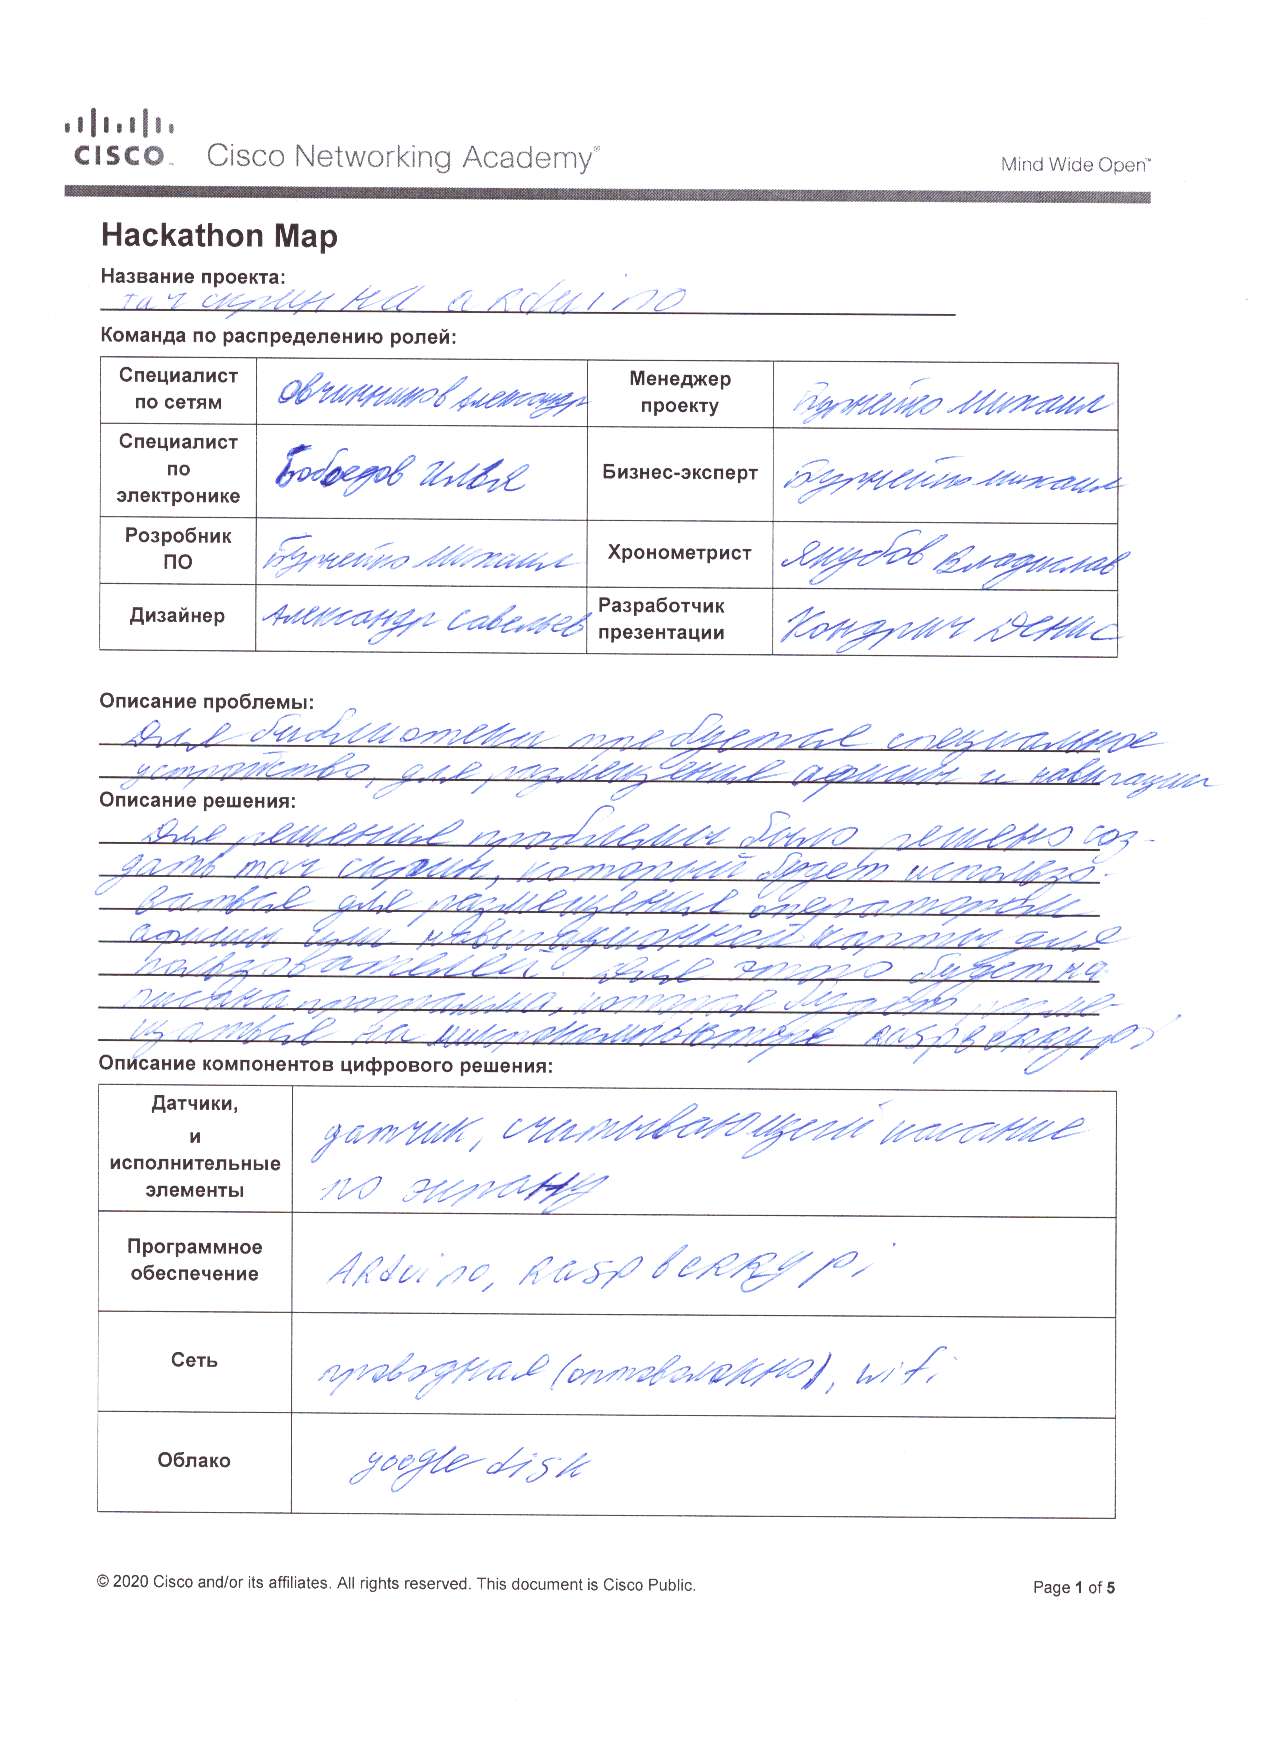 CISCO
Cisco Networking Academy®
Mind Wide Open™
Hackathon Map
Название проекта:
тач скрин на arduino
Команда по распределению ролей:
Специалист по сетям
Овчинников Александр
Менеджер проекту
Михаил
Специалист по электронике
Бобоедов Илья
Бизнес-эксперт
Михаил
Розробник ПО
Михаил
Хронометрист
Якубов Владислав
Дизайнер
Александр Савельев
Разработчик презентации
Кондрич Денис
Описание проблемы:
Для библиотеки требуется специальное
устройство, для размещения афиши и навигации
Описание решения:
Для решения проблемы было решено соз-
дать тач скрин, который будет использо-
ваться для размещения оператором
афиши или навигационной карты для
пользователей. Для этого будет на
писана программа, которая будет разме-
щаться на микрокомпьютере raspberry pi
Описание компонентов цифрового решения:
Датчики, и исполнительные элементы
датчик, считывающий касание
по экрану
Программное обеспечение
Arduino, raspberry pi
Сеть
проводная (оптоволокно), wifi
Облако
google disk
© 2020 Cisco and/or its affiliates. All rights reserved. This document is Cisco Public.
Page 1 of 5